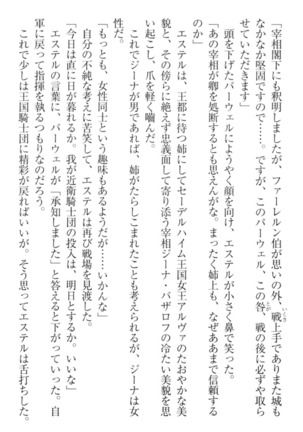 「宰相閣下にも釈明しましたが、ファーレンハ伯が思いの外、戦上手でありまた城も
なかなか堅固ですので……。ですが、このパーヴェル、この咎、戦の後に必ずや取ら
せていただきます」
頭を下げたパーヴェルにようやく顔を向け、エステルが小さく鼻で笑った。
「あの宰相が卿を処断するとも思えんがな。まったく姉上も、なぜああまで信頼する
のか」
エステルは、王都に待つ姉にしてセーデルハイム王国女王アルヴァのたおやかな美
貌と、その傍らに絶えず忠義面して寄り添う宰相ジーナ・バザロフの冷たい美貌を思
い起こし、爪を軽く噛んだ。
これでジーナが男であれば、姉がたらしこまれたことも考えられるが、ジーナは女
性だ。
「もっとも、女性同士という趣味もあるようだが……いかんな」
自分の不純な考えに苦笑して、エステルは再び戦場を見渡した。
「今日は直に日が暮れるか。我が近衛騎士団の投入は、明日とするか。いいな」
エステルの言葉に、パーヴェルが「承知しました」と答えると下がっていった。自
軍に戻って指揮を執るつもりなのだろう。
これで少しは王国騎士団に精彩が戻ればいいが。そう思ってエステルは舌打ちした。